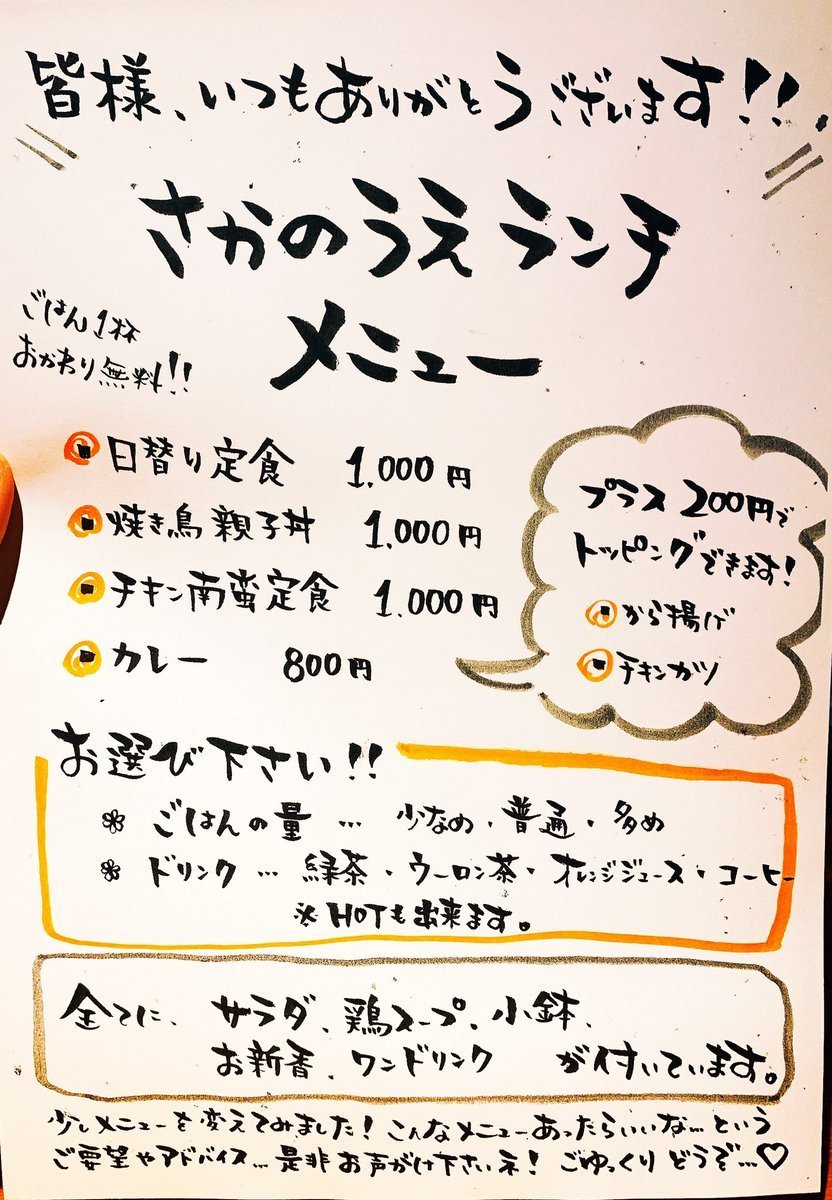 皆様、いつもありがとうございます!!
さかのうえランチ
メニュー
ごはん1杯
おかわり無料!!
日替り定食 1.000円
焼き鳥親子丼 1.000円
チキン南蛮定食 1.000円
カレー 800円
プラス200円で
トッピングできます!
から揚げ
チキンカツ
お選び下さい!!
ごはんの量 … 少なめ・普通・多め
ドリンク … 緑茶・ウーロン茶・オレンジジュース・コーヒー
※HOTも出来ます。
全てに、サラダ、鶏スープ、小鉢、
お新香、ワンドリンク が付いています。
少しメニューを変えてみました! こんなメニューあったらいいな…という
ご要望やアドバイス…是非お声がけ下さいネ! ごゆっくりどうぞ…♡